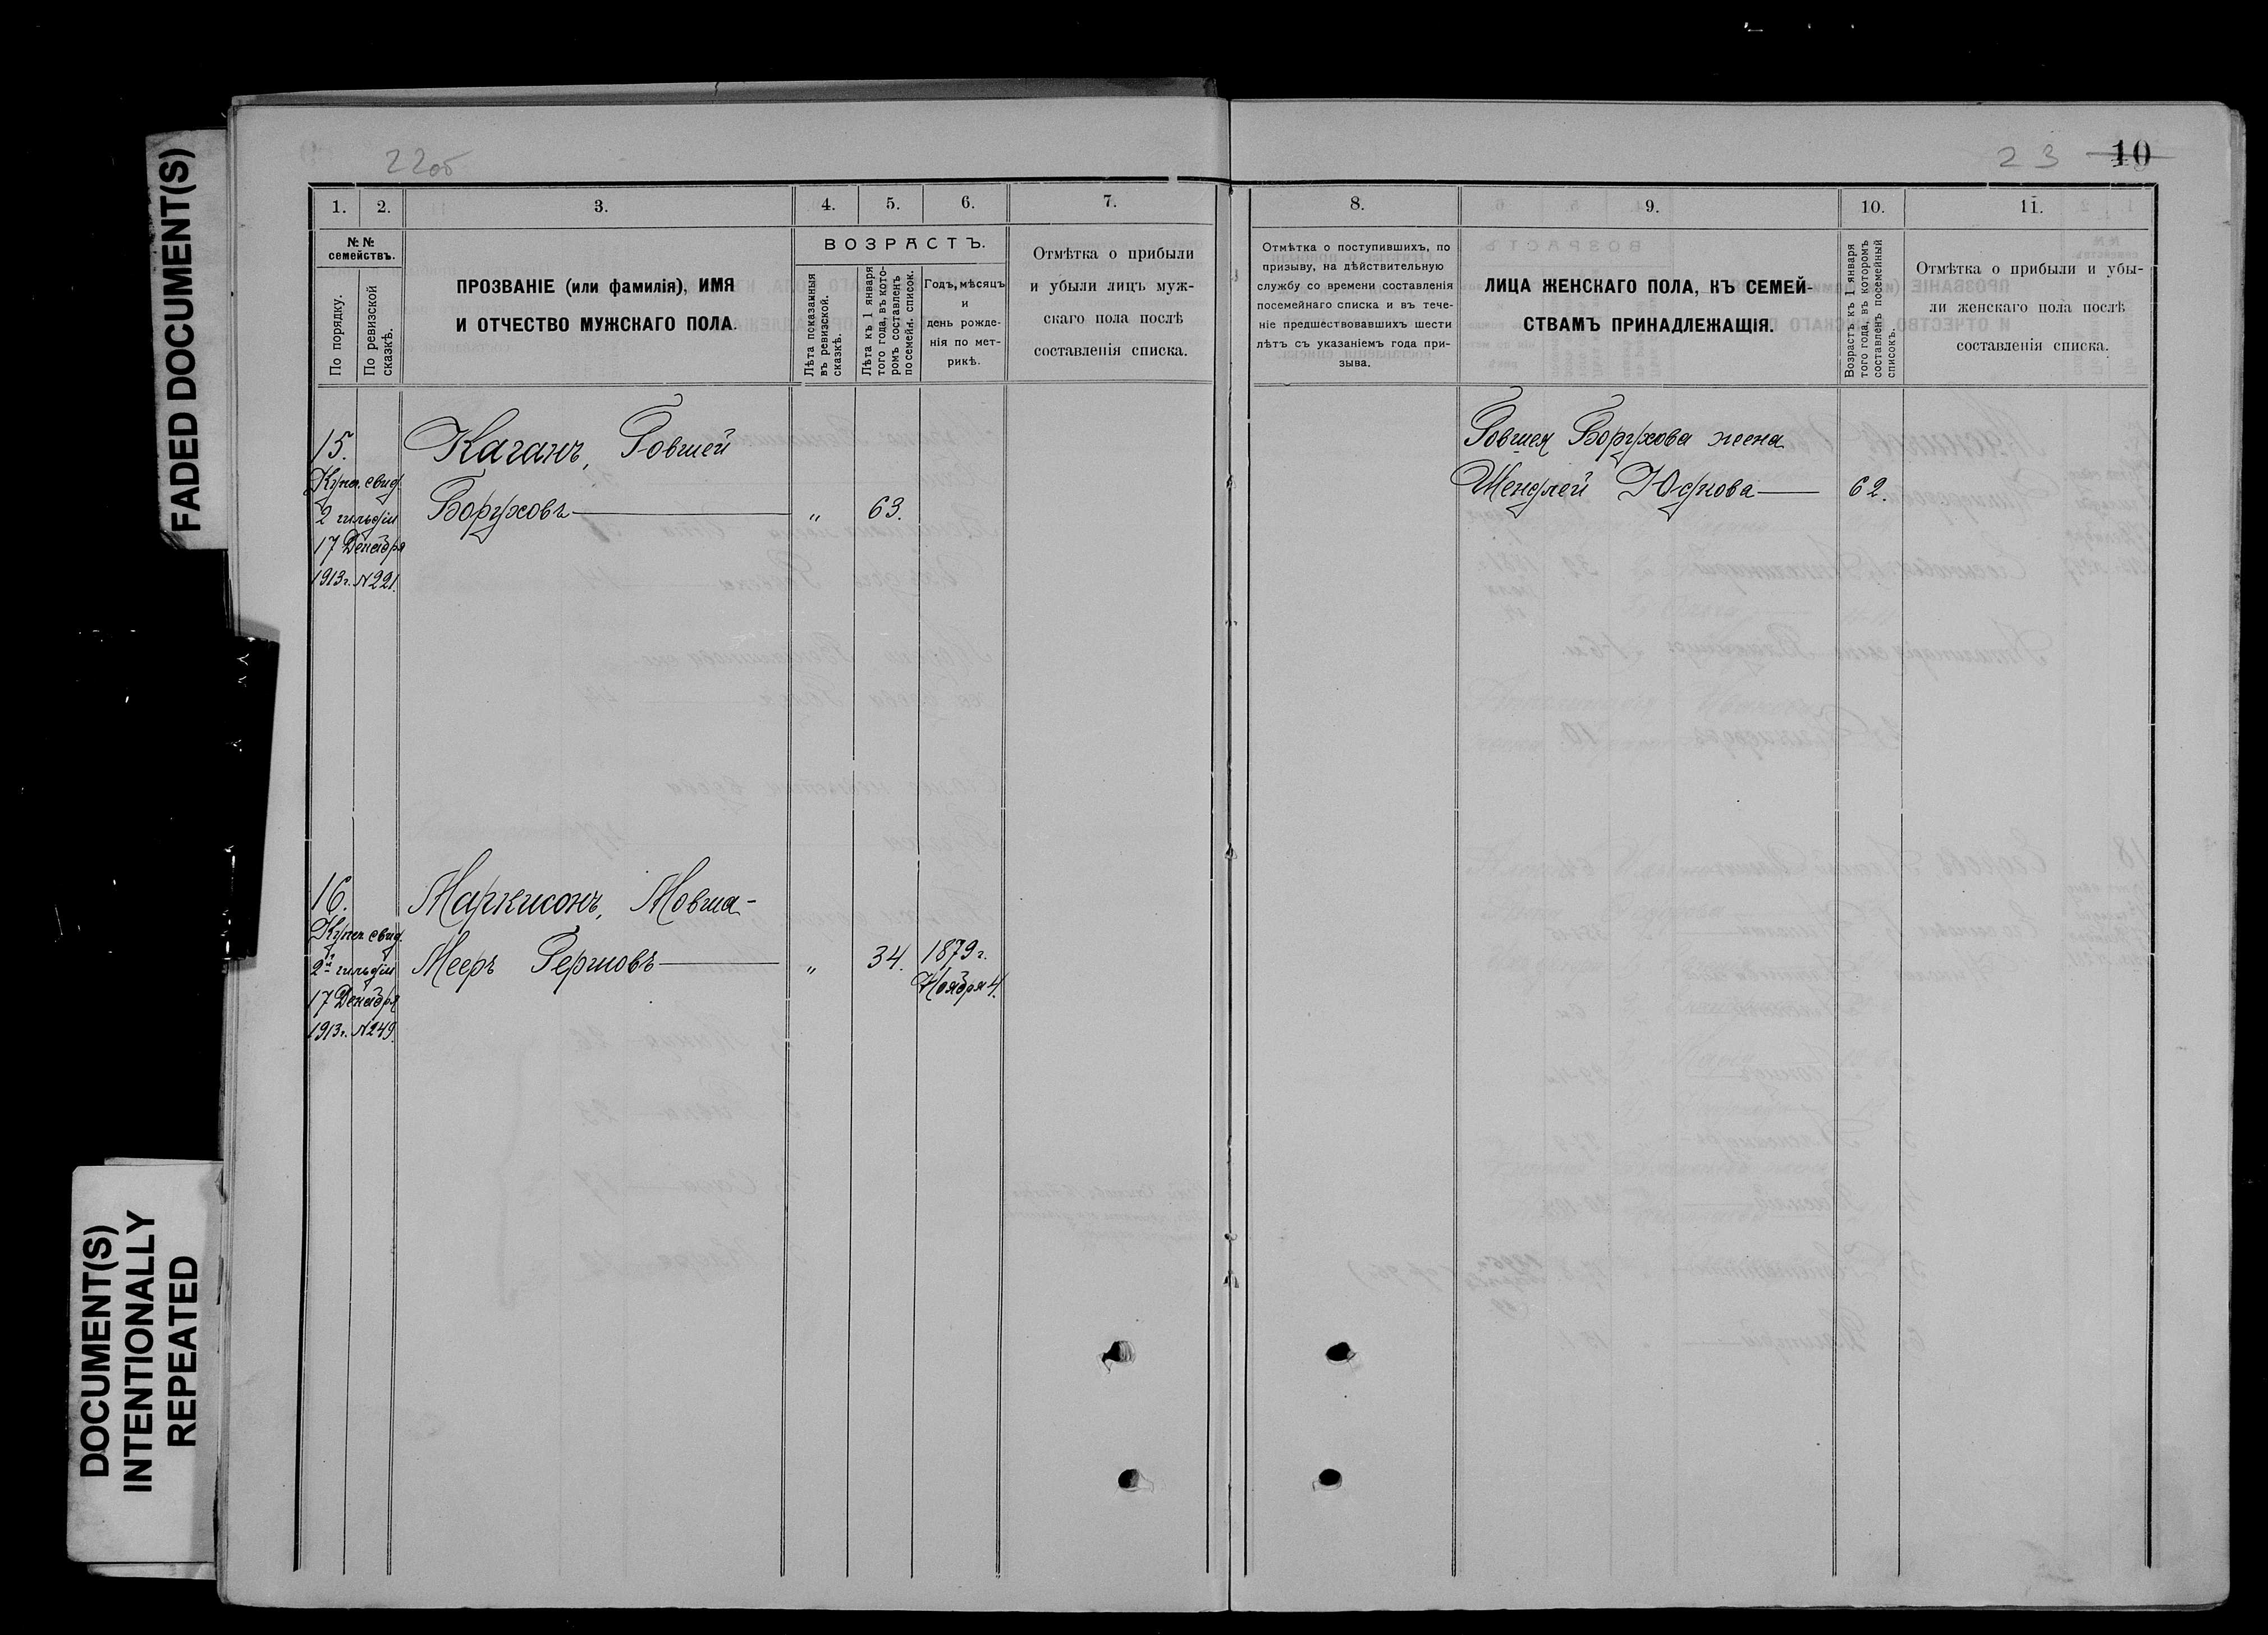 FADED DOCUMENT(S)
DOCUMENT(S)
INTENTIONALLY
REPEATED
22об
23 10
1. 2. 3. 4. 5. 6. 7.
№ №
семействъ.
По порядку.
По ревизской
сказкѣ.
ПРОЗВАНІЕ (или фамилія), ИМЯ
И ОТЧЕСТВО МУЖСКАГО ПОЛА.
ВОЗРАСТЪ.
Лѣта показанныя
въ ревизской
сказкѣ.
Лѣта къ 1 января
того года, въ кото-
ромъ составленъ
посемейн. список.
Годъ, мѣсяцъ
и
день рожде-
нія по мет-
рикѣ.
Отмѣтка о прибыли
и убыли лицъ муж-
скаго пола послѣ
составленія списка.
15.
Купеч. свид.
2 гильдіи
17 Декабря
1913 г. № 221.
Каганъ, Говшей
Боруховъ „ 63.
16.
Купеч. свид.
2й гильдіи
17 Декабря
1913 г. № 249.
Маркисонъ, Мовша-
Мееръ Гершовъ „ 34. 1879 г.
Ноября 4.
8. 9. 10. 11.
Отмѣтка о поступившихъ, по
призыву, на дѣйствительную
службу со времени составленія
посемейнаго списка и въ тече-
ніе предшествовавшихъ шести
лѣтъ съ указаніемъ года при-
зыва.
ЛИЦА ЖЕНСКАГО ПОЛА, КЪ СЕМЕЙ-
СТВАМЪ ПРИНАДЛЕЖАЩІЯ.
Возрастъ къ 1 января
того года, въ которомъ
составленъ посемейный
списокъ.
Отмѣтка о прибыли и убы-
ли женскаго пола послѣ
составленія списка.
Говшея Борухова жена
Шендлей Юдкова 62.